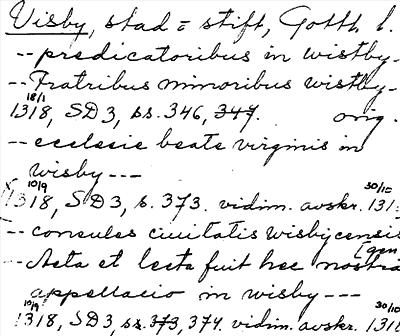 Visby, stad = stift, Gotth l.
-- predicatoribus in wistby-
-- Fratribus minoribus wistby-
18/1
1318, SD 3, ss. 346, 347. orig.
-- ecclesie beate virginis in
wisby ---
10/9 30/10
1318, SD 3, s. 373. vidim. avskr. 131
-- consules ciuitatis wisbycensis
[gen
-- Acta et lecta fuit hec nostra
appellacio in wisby ---
10/9 30/10
1318, SD 3, ss. 373, 374. vidim. avskr. 131